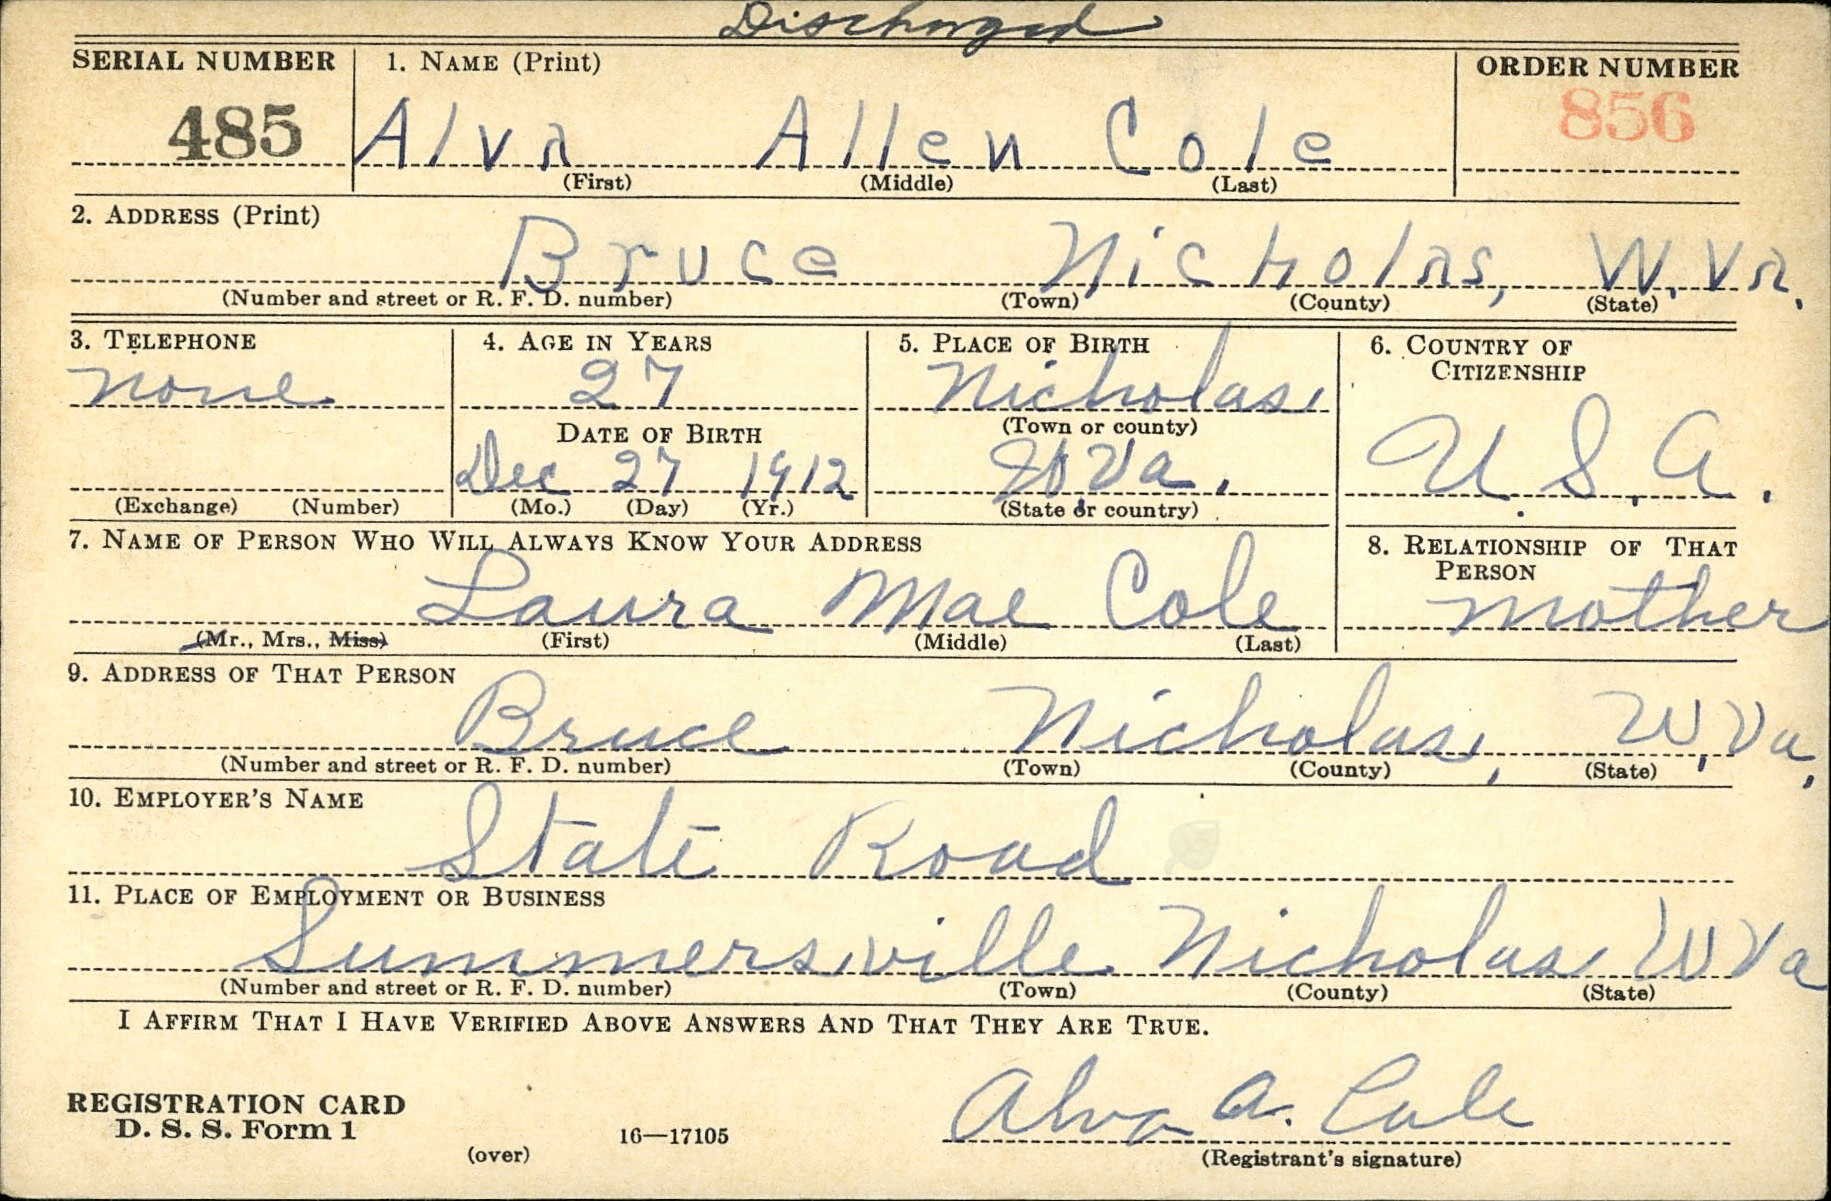 Discharged
SERIAL NUMBER 1. NAME (Print) ORDER NUMBER
485 Alva Allen Cole 856
(First) (Middle) (Last)
2. ADDRESS (Print)
Bruce Nicholas, W.Va.
(Number and street or R. F. D. number) (Town) (County) (State)
3. TELEPHONE 4. AGE IN YEARS 5. PLACE OF BIRTH 6. COUNTRY OF CITIZENSHIP
None 27 Nicholas
(Town or county)
DATE OF BIRTH
Dec 27 1912 W.Va. U.S.A.
(Exchange) (Number) (Mo.) (Day) (Yr.) (State or country)
7. NAME OF PERSON WHO WILL ALWAYS KNOW YOUR ADDRESS 8. RELATIONSHIP OF THAT PERSON
Laura Mae Cole Mother
(Mr., Mrs., Miss) (First) (Middle) (Last)
9. ADDRESS OF THAT PERSON
Bruce Nicholas, W.Va.
(Number and street or R. F. D. number) (Town) (County) (State)
10. EMPLOYER'S NAME
State Road
11. PLACE OF EMPLOYMENT OR BUSINESS
Summersville Nicholas W Va
(Number and street or R. F. D. number) (Town) (County) (State)
I AFFIRM THAT I HAVE VERIFIED ABOVE ANSWERS AND THAT THEY ARE TRUE.
REGISTRATION CARD
D. S. S. Form 1
(over) 16—17105
Alva A. Cole
(Registrant's signature)